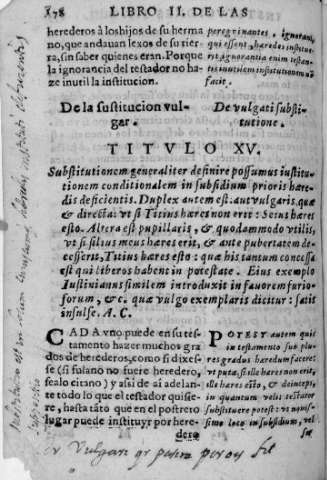 178 LIBRO II. DE LAS
herederos à los hijos de su herma
no, que andauan lexos de su tier
ra, sin saber quienes eran. Porque
la ignorancia del testador no ha-
ze inutil la institucion.
peregrinantes, ignorani,
qui essent, hæredes institue-
re, ignorantia enim testan-
tis inutilem institutionem nō
facit.
De la sustitucion vul-
gar.
De vulgari substi-
tutione.
TITVLO XV.
Substitutionem generaliter definire possumus institu-
tionem conditionalem in subsidium prioris hære-
dis deficientis. Duplex autem est. aut vulgaris, quæ
& directa: vt si Titius hæres non erit: Seius hæres
esto. Altera est pupillaris, & quodammodo vtilis,
vt si filius meus hæres erit, & ante pubertatem de-
cesserit, Titius hæres esto: quæ his tantum concessa
est qui liberos habent in potestate. Eius exemplo
Iustinianus similem introduxit in fauorem furio-
forum, & c. quæ vulgo exemplaris dicitur: satis
insulse. A. C.
CADA vno puede en su tes-
tamento hazer muchos gra
dos de herederos, como si dixes-
se (si fulano no fuere heredero,
sealo citano) y assi de ai adelan-
te todo lo que el testador quisie-
re, hasta tāto que en el postrero
lugar puede instituyr por here-
dero
POTEST autem quis
in testamento suo plu-
res gradus hæredum facere:
vt puta, si ille hæres non erit,
ille hæres esto, & deinceps,
in quantum velit testator
substituere potest: vt nouis-
simo loco in subsidium, vel